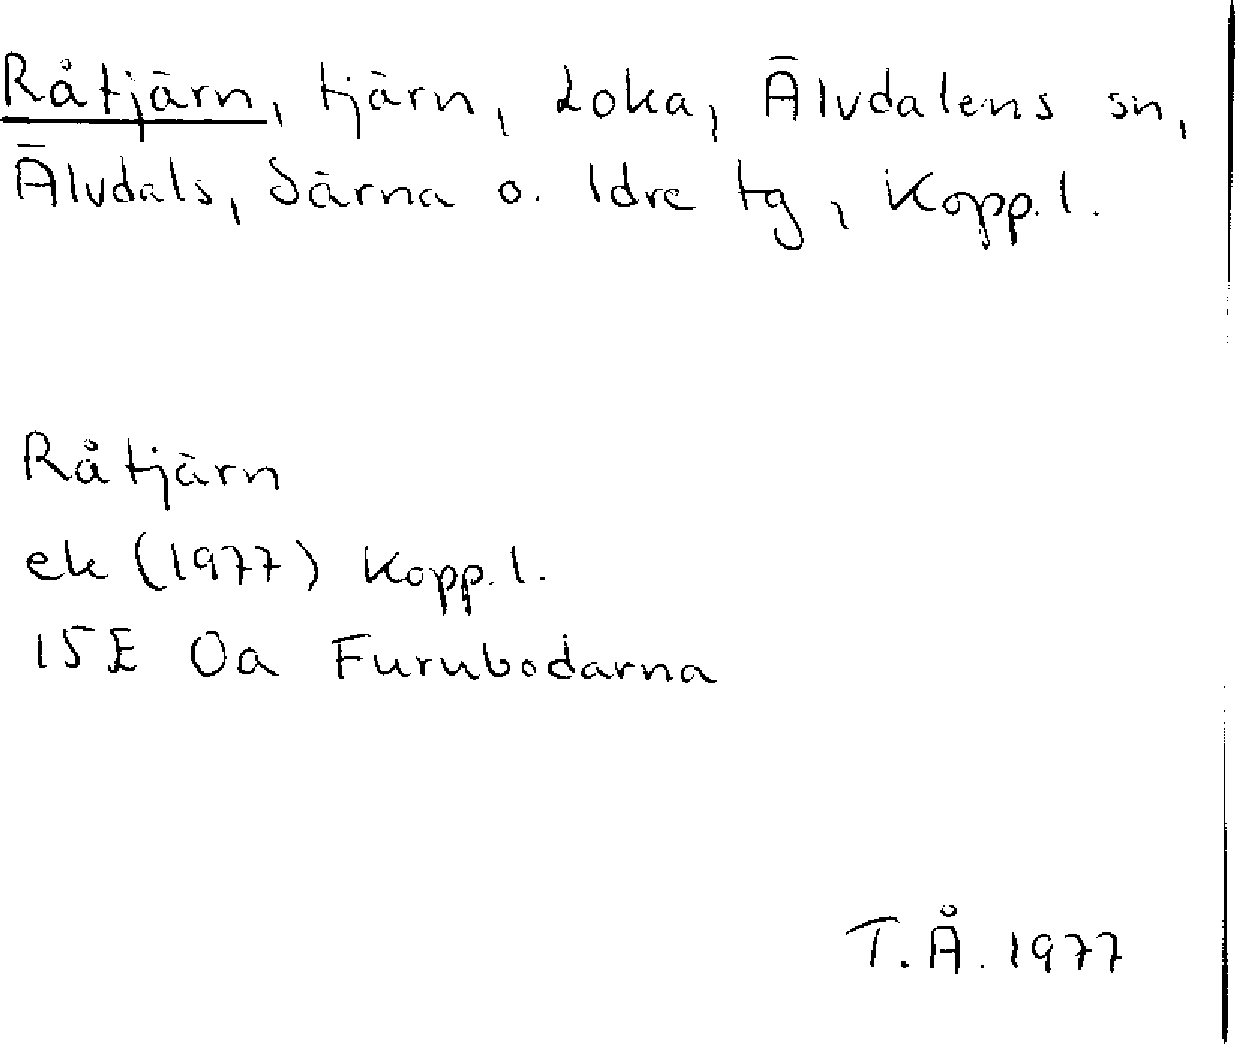 Råtjärn, tjärn, Loka, Älvdalens sn,
Älvdals, Särna o. Idre tg, Kopp. l.
Råtjärn
ek (1977) Kopp. l.
15E 0a Furubodarna
T.Å. 1977